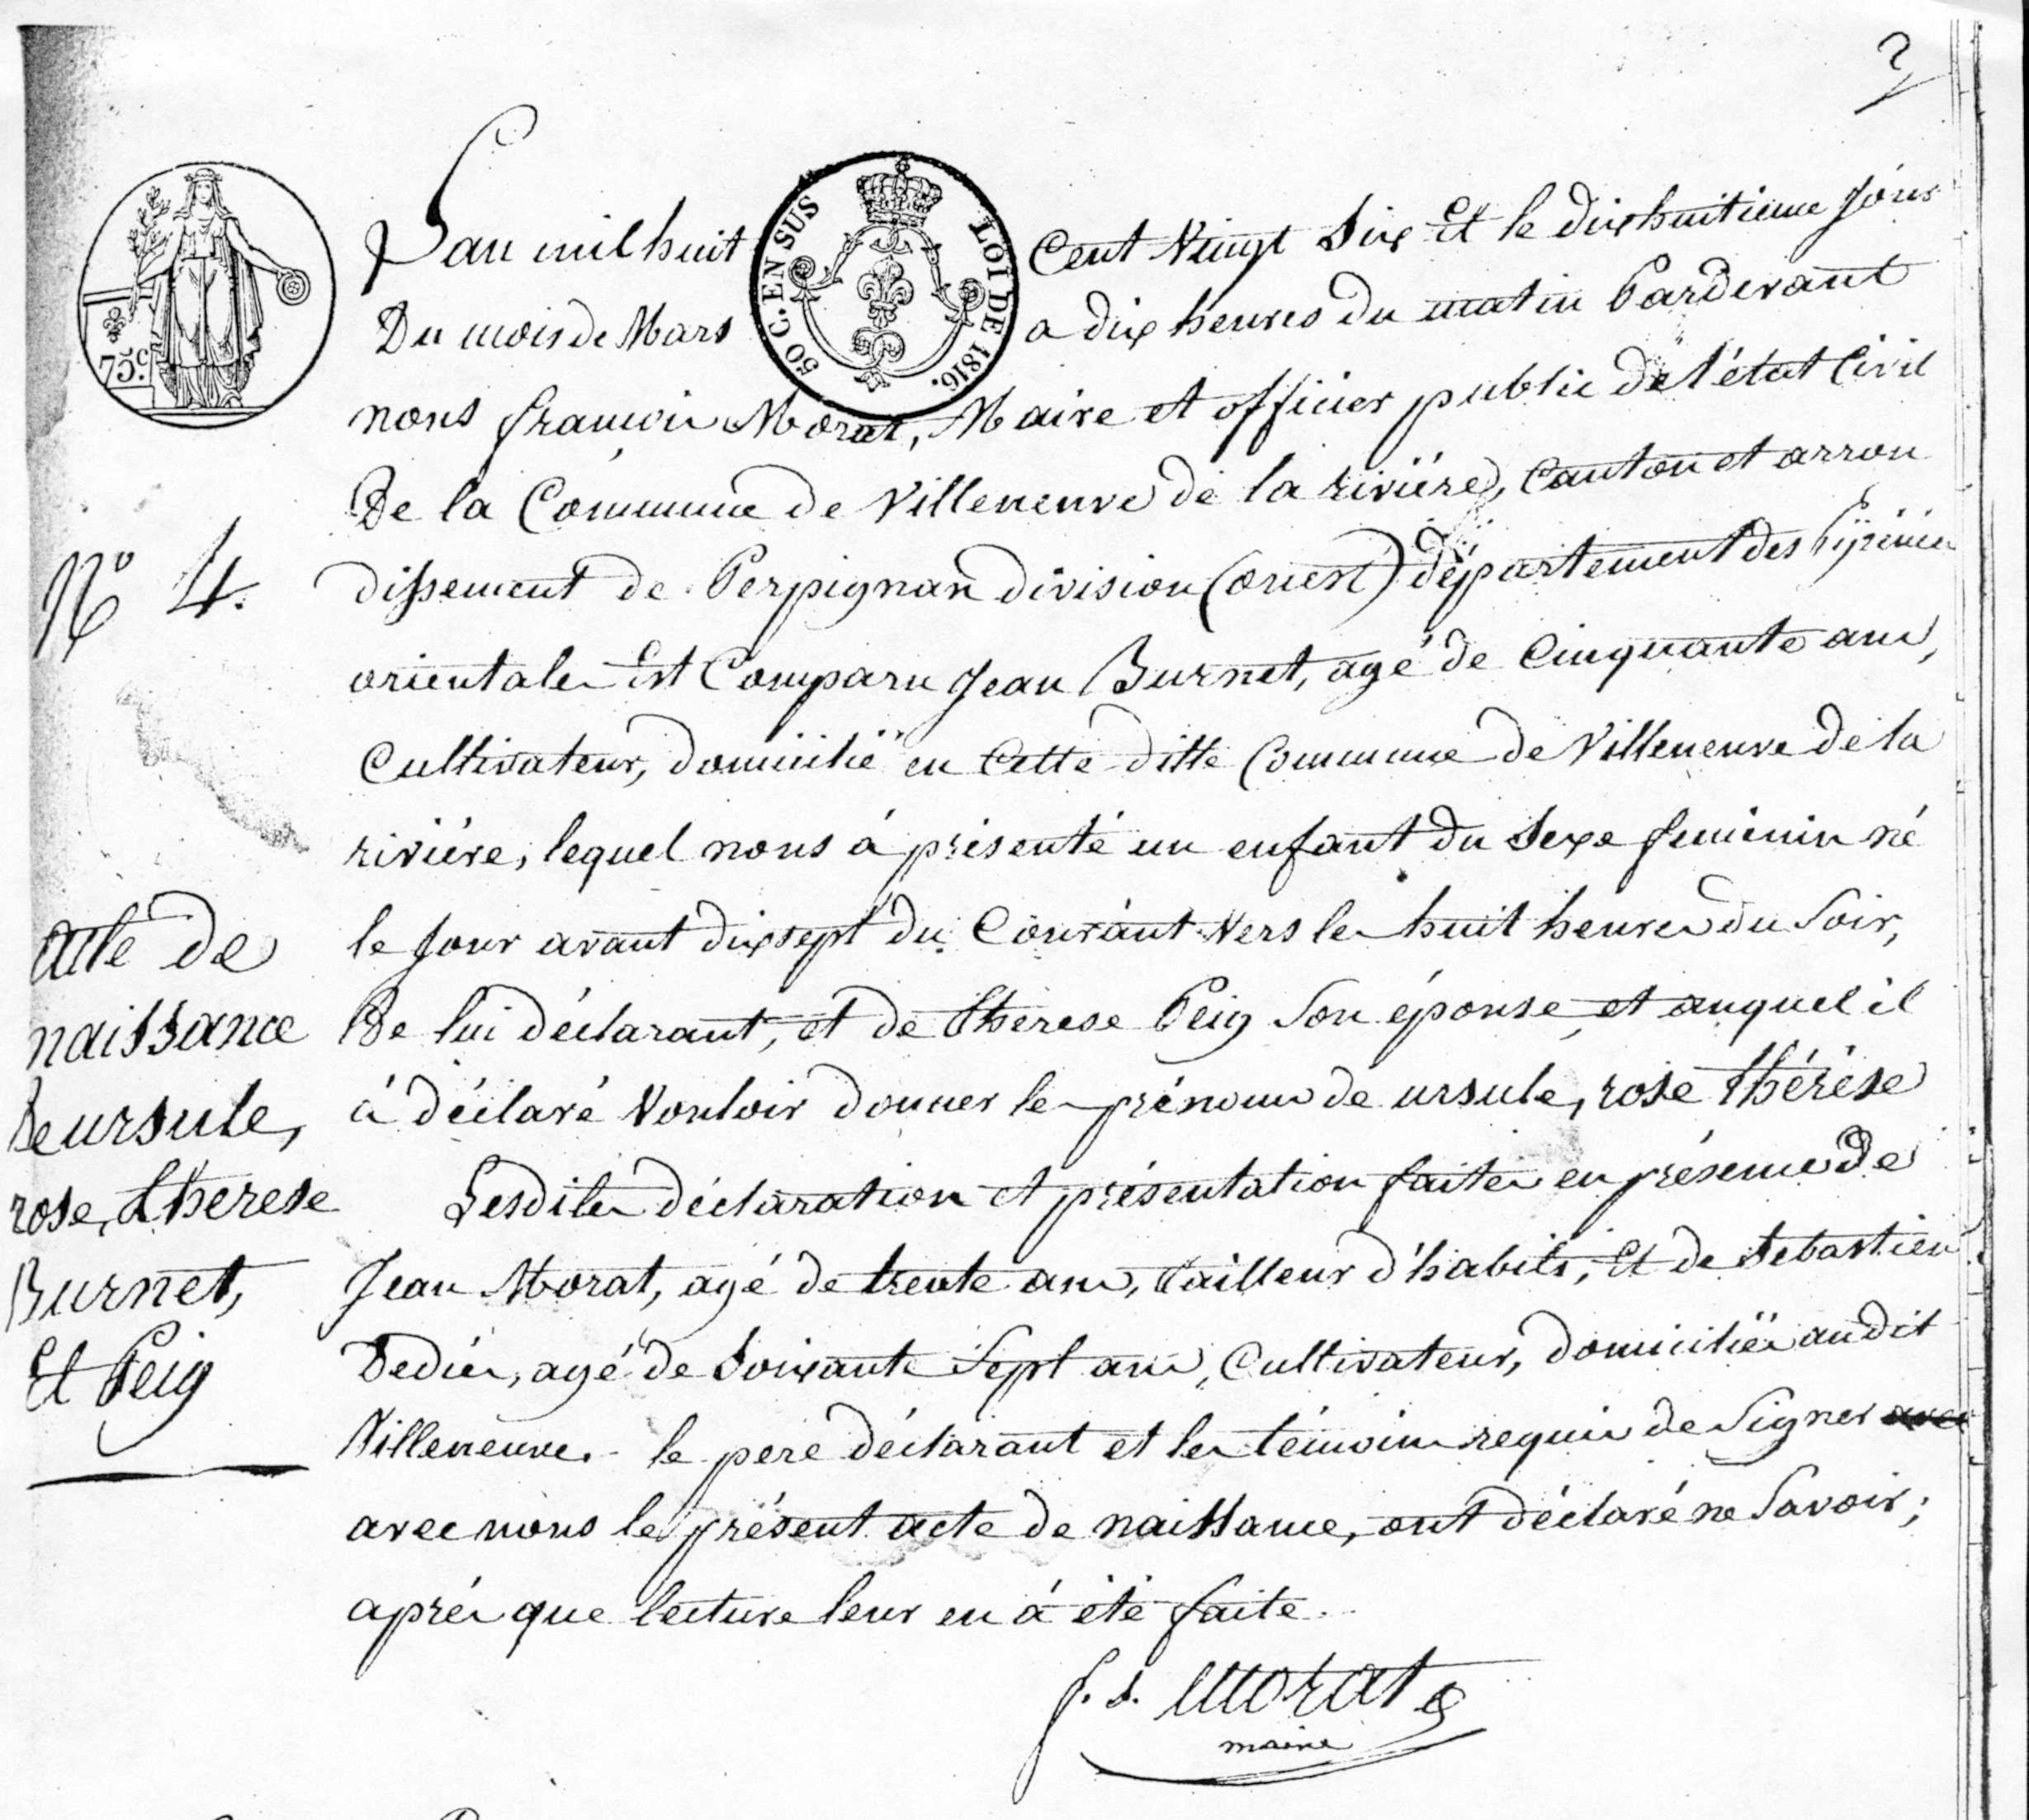 2
75c.
50 C. EN SUS
LOI DE 1816.
L'an mil huit Cent Vingt Six Et le dixhuitieme Jour
Du mois de Mars a dix heures du matin Pardevant
nous françois Morat, Maire et officier public de l'état Civil
De la Commune de Villeneuve de la riviére, Canton et arron
dissement de Perpignan division (ouest) département des Pÿrénées
orientales Est Comparu Jean Burnet, agé de Cinquante ans,
Cultivateur, domicilié en Cette ditte Commune de Villeneuve de la
riviére, lequel nous á présenté un enfant du Sexe feminin né
le Jour avant dixsept du Courant Vers les huit heures du Soir,
De lui déclarant, et de Therese Peig Son épouse, et auquel il
á déclaré Vouloir donner les prénoms de ursule, rose thérése
Lesdites déclaration et présentation faites en présence de
Jean Morat, agé de trente ans, tailleur d'habits, Et de Sebastien
Dedies, agé de Soixante Sept ans, Cultivateur, domiciliés audit
Villeneuve. - le pere déclarant et les témoins requis de Signer avec
avec nous le présent acte de naissance, ont déclaré ne Savoir;
aprés que lecture leur en á été faite.
f. s. Morat
maire
N° 4.
acte de
naissance
De ursule,
rose, therese
Burnet,
Et Peig